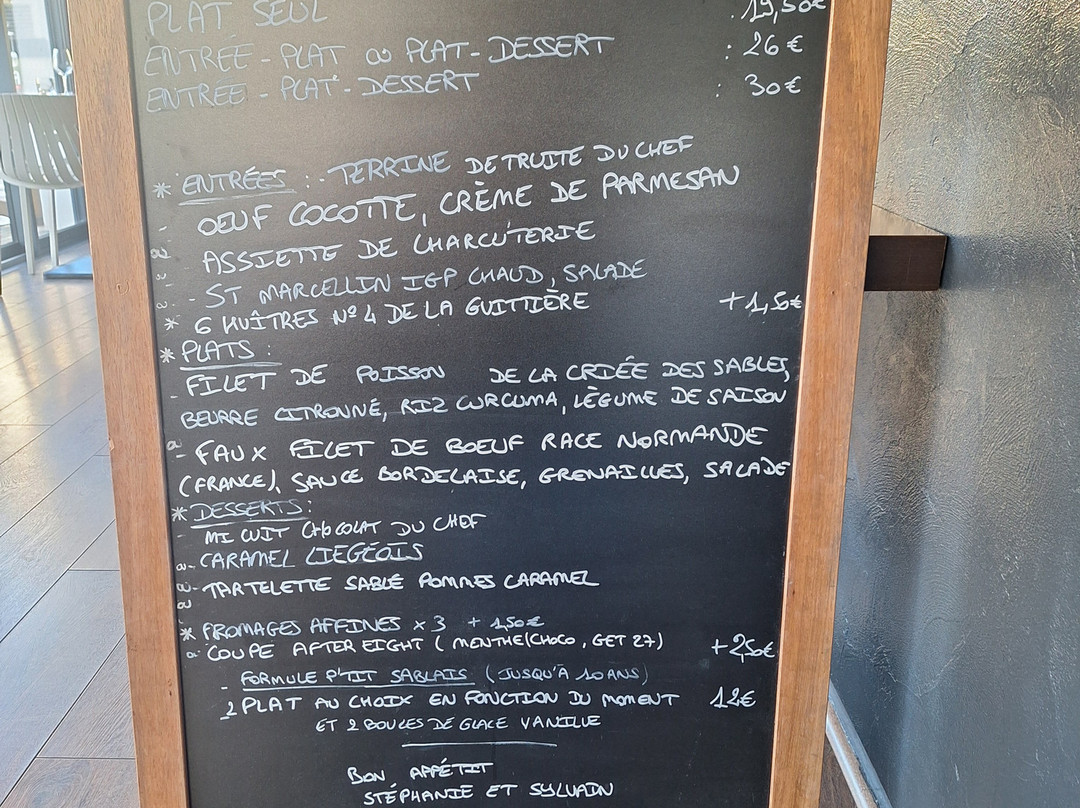 PLAT SEUL : 19,50€
ENTRÉE - PLAT OU PLAT - DESSERT : 26 €
ENTRÉE - PLAT - DESSERT : 30 €
* ENTRÉES : - TERRINE DE TRUITE DU CHEF
- OEUF COCOTTE, CRÈME DE PARMESAN
ASSIETTE DE CHARCUTERIE
- ST MARCELLIN IGP CHAUD, SALADE
* 6 HUÎTRES N°4 DE LA GUITTIÈRE +1,50€
* PLATS :
- FILET DE POISSON DE LA CRIÉE DES SABLES,
BEURRE CITRONNÉ, RIZ CURCUMA, LÈGUME DE SAISON
- FAUX FILET DE BOEUF RACE NORMANDE
(FRANCE), SAUCE BORDELAISE, GRENAILLES, SALADE
* DESSERTS :
- MI CUIT CHOCOLAT DU CHEF
- CARAMEL LIEGEOIS
- TARTELETTE SABLÉ POMMES CARAMEL
* FROMAGES AFFINES x 3 + 1,50€
- COUPE AFTER EIGHT (MENTHE/CHOCO, GET 27) +2,50€
- FORMULE P'TIT SABLAIS (JUSQU'À 10 ANS)
1 PLAT AU CHOIX EN FONCTION DU MOMENT 12€
ET 2 BOULES DE GLACE VANILLE
BON APPÉTIT
STÉPHANIE ET SYLVAIN